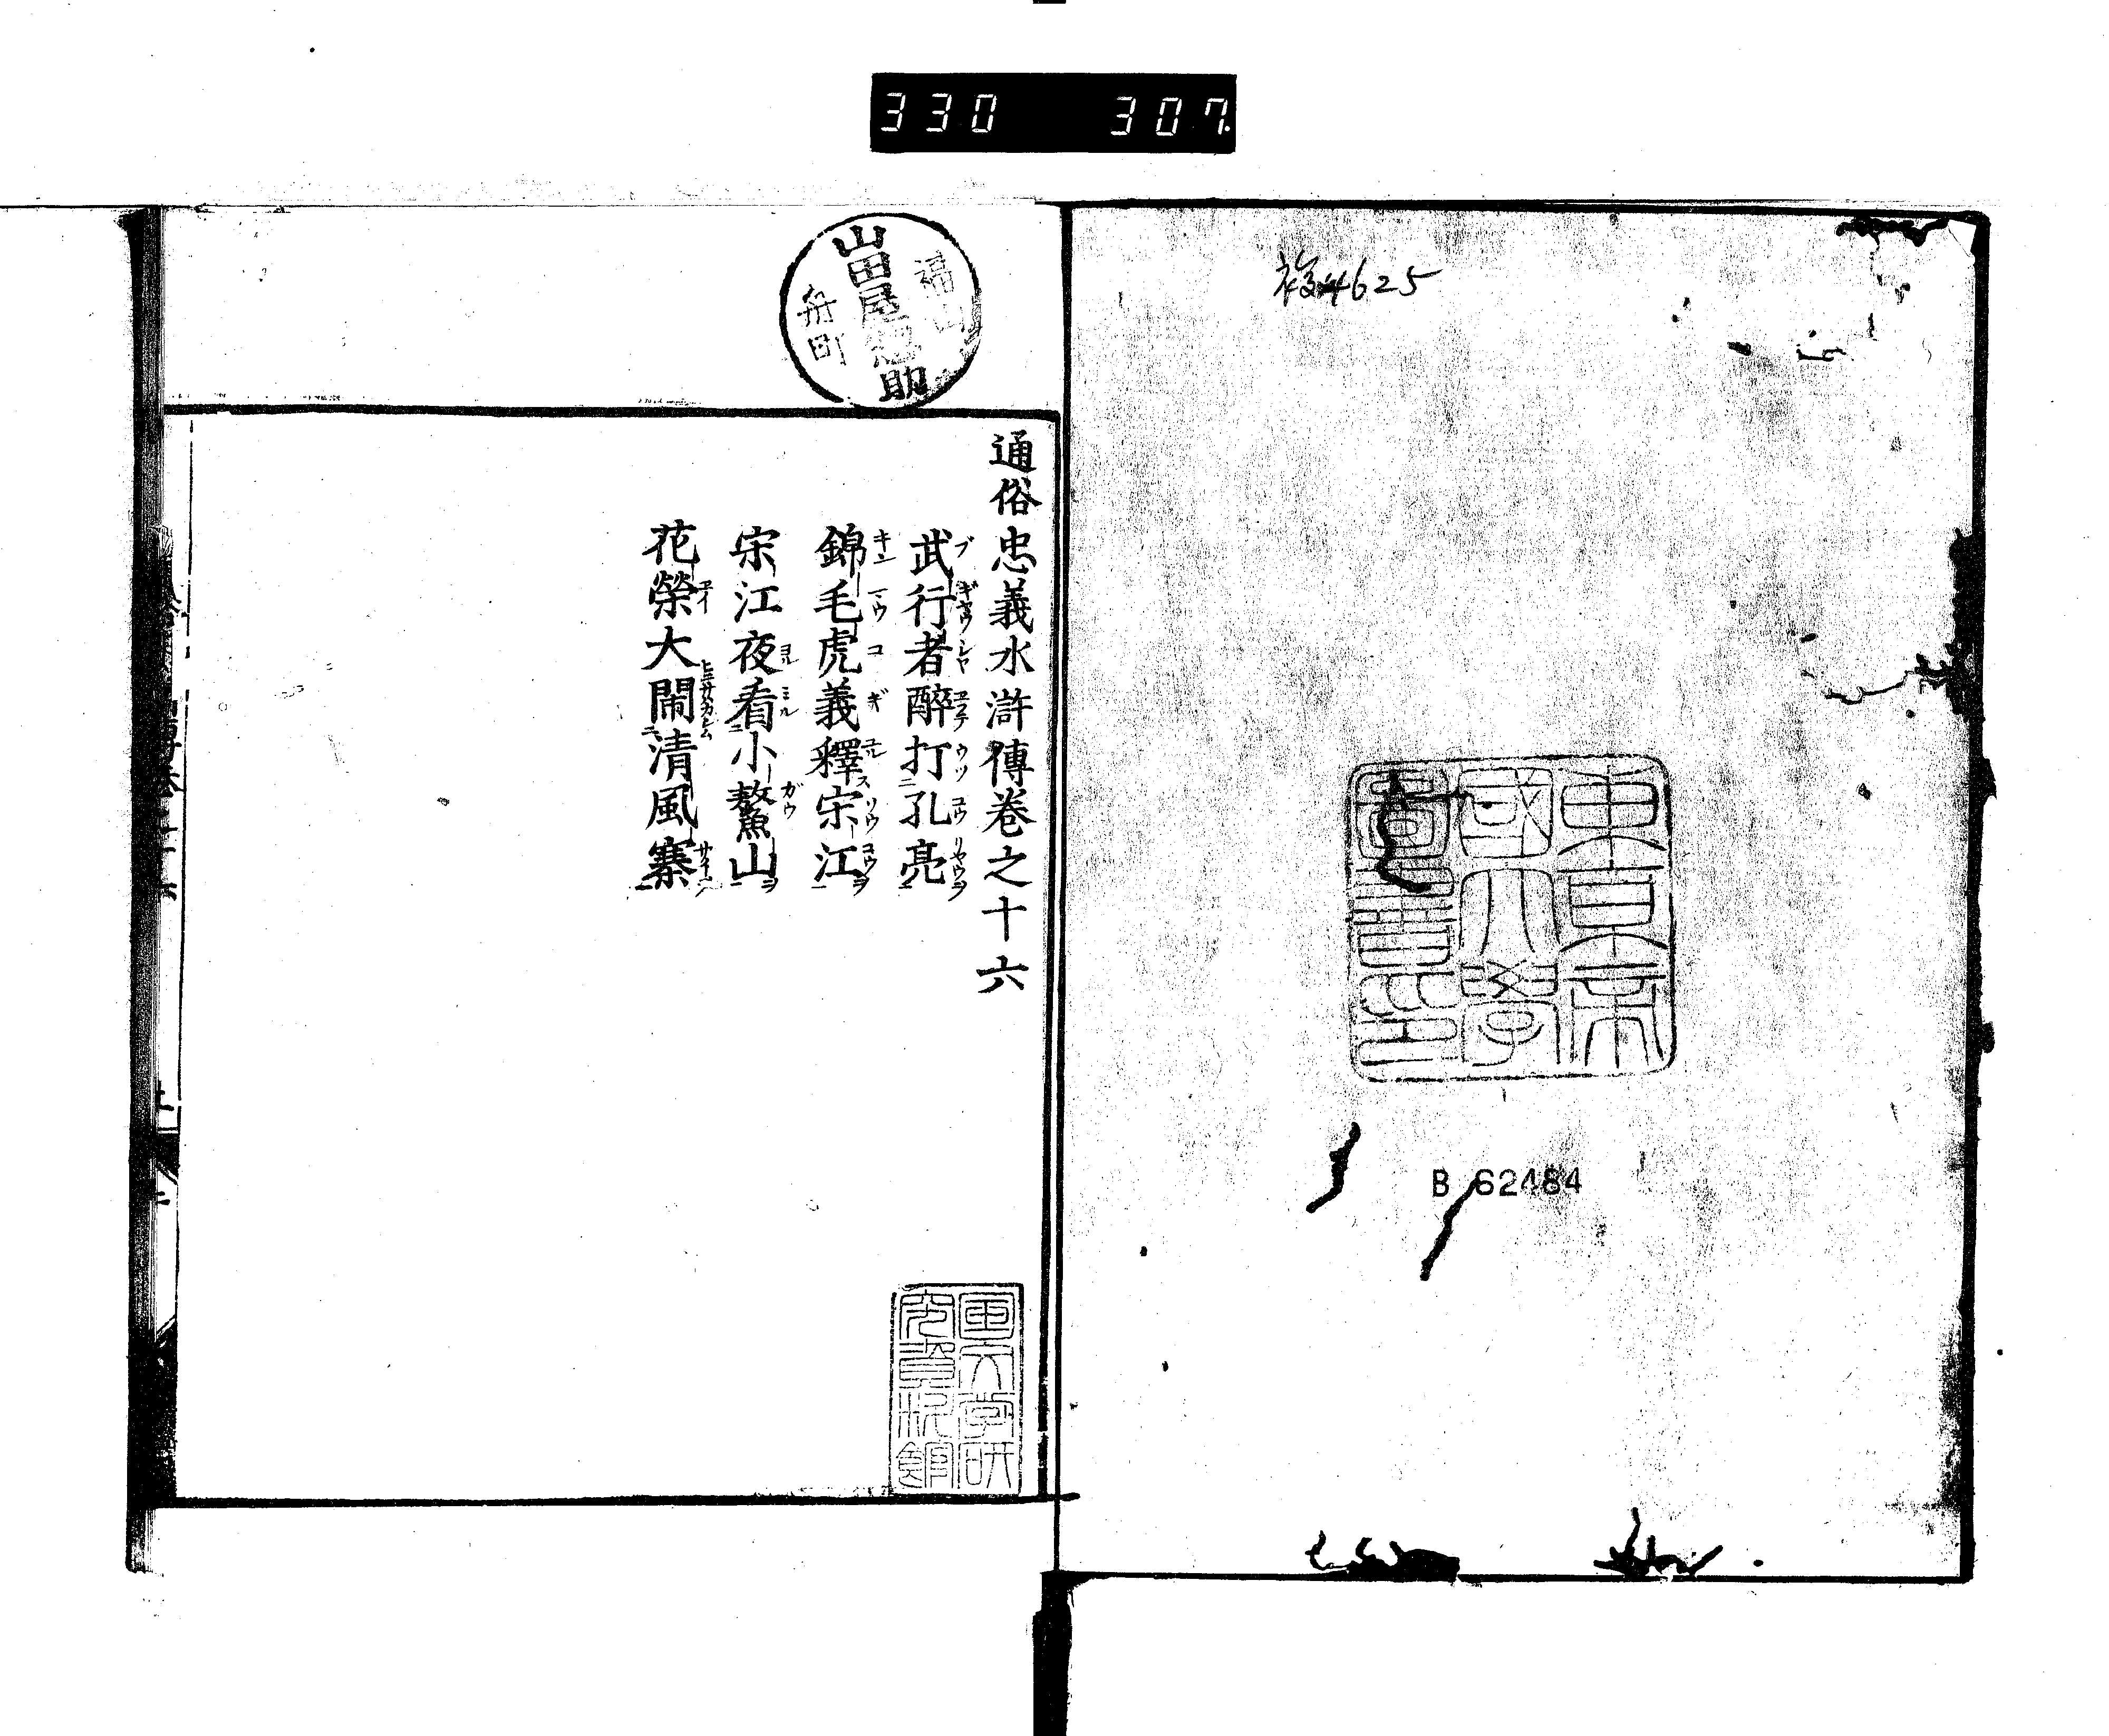 330 307
複4625
東京帝
國大學
圖書印
B 62484
福山
山田屋
助
舟町
通俗忠義水滸傳卷之十六
武行者醉打孔亮
錦毛虎義釋宋江
宋江夜看小鰲山
花榮大鬧清風寨